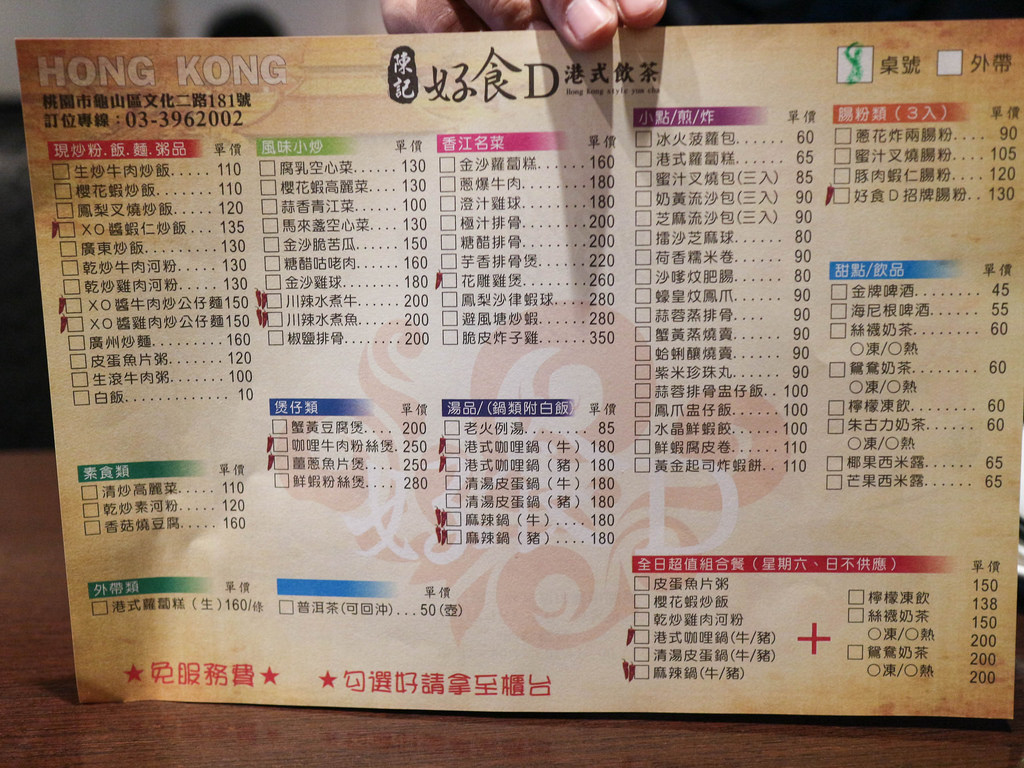 HONG KONG
桃園市龜山區文化二路181號
訂位專線：03-3962002
陳記 好食D 港式飲茶
Hong Kong style yum cha
桌號 外帶
現炒粉.飯.麵.粥品 單價
生炒牛肉炒飯..... 110
櫻花蝦炒飯........ 110
鳳梨叉燒炒飯..... 120
XO醬蝦仁炒飯... 135
廣東炒飯........... 130
乾炒牛肉河粉..... 130
乾炒雞肉河粉..... 130
XO醬牛肉炒公仔麵150
XO醬雞肉炒公仔麵150
廣州炒麵........... 160
皮蛋魚片粥........ 120
生滾牛肉粥........ 100
白飯................. 10
素食類 單價
清炒高麗菜..... 110
乾炒素河粉..... 120
香菇燒豆腐..... 160
外帶類 單價
港式蘿蔔糕（生）160/條
風味小炒 單價
腐乳空心菜..... 130
櫻花蝦高麗菜.. 130
蒜香青江菜..... 100
馬來盞空心菜.. 130
金沙脆苦瓜..... 150
糖醋咕咾肉..... 160
金沙雞球........ 180
川辣水煮牛..... 200
川辣水煮魚..... 200
椒鹽排骨........ 200
煲仔類 單價
蟹黃豆腐煲..... 200
咖哩牛肉粉絲煲. 250
薑蔥魚片煲..... 250
鮮蝦粉絲煲..... 280
單價
普洱茶(可回沖)... 50(壺)
香江名菜 單價
金沙蘿蔔糕..... 160
蔥爆牛肉........ 180
澄汁雞球........ 180
極汁排骨........ 200
糖醋排骨........ 200
芋香排骨煲..... 220
花雕雞煲........ 260
鳳梨沙律蝦球.. 280
避風塘炒蝦..... 280
脆皮炸子雞..... 350
湯品/(鍋類附白飯) 單價
老火例湯........ 85
港式咖哩鍋（牛）180
港式咖哩鍋（豬）180
清湯皮蛋鍋（牛）180
清湯皮蛋鍋（豬）180
麻辣鍋（牛）.... 180
麻辣鍋（豬）.... 180
小點/煎/炸 單價
冰火菠蘿包..... 60
港式蘿蔔糕..... 65
蜜汁叉燒包(三入) 85
奶黃流沙包(三入) 90
芝麻流沙包(三入) 90
擂沙芝麻球..... 80
荷香糯米卷..... 90
沙嗲炆肥腸..... 80
蠔皇炆鳳爪..... 90
蒜蓉蒸排骨.... 90
蟹黃蒸燒賣..... 90
蛤蜊釀燒賣..... 90
紫米珍珠丸..... 90
蒜蓉排骨盅仔飯.. 100
鳳爪盅仔飯..... 100
水晶鮮蝦餃..... 100
鮮蝦腐皮卷..... 110
黃金起司炸蝦餅.. 110
腸粉類（3入） 單價
蔥花炸兩腸粉.... 90
蜜汁叉燒腸粉.... 105
豚肉蝦仁腸粉.... 120
好食D招牌腸粉.. 130
甜點/飲品 單價
金牌啤酒........ 45
海尼根啤酒..... 55
絲襪奶茶........ 60
○凍/○熱
鴛鴦奶茶........ 60
○凍/○熱
檸檬凍飲........ 60
朱古力奶茶..... 60
○凍/○熱
椰果西米露..... 65
芒果西米露..... 65
全日超值組合餐（星期六、日不供應） 單價
皮蛋魚片粥 150
櫻花蝦炒飯 138
乾炒雞肉河粉 150
港式咖哩鍋(牛/豬) 200
清湯皮蛋鍋(牛/豬) 200
麻辣鍋(牛/豬) 200
+
檸檬凍飲
絲襪奶茶
○凍/○熱
鴛鴦奶茶
○凍/○熱
★免服務費★ ★勾選好請拿至櫃台